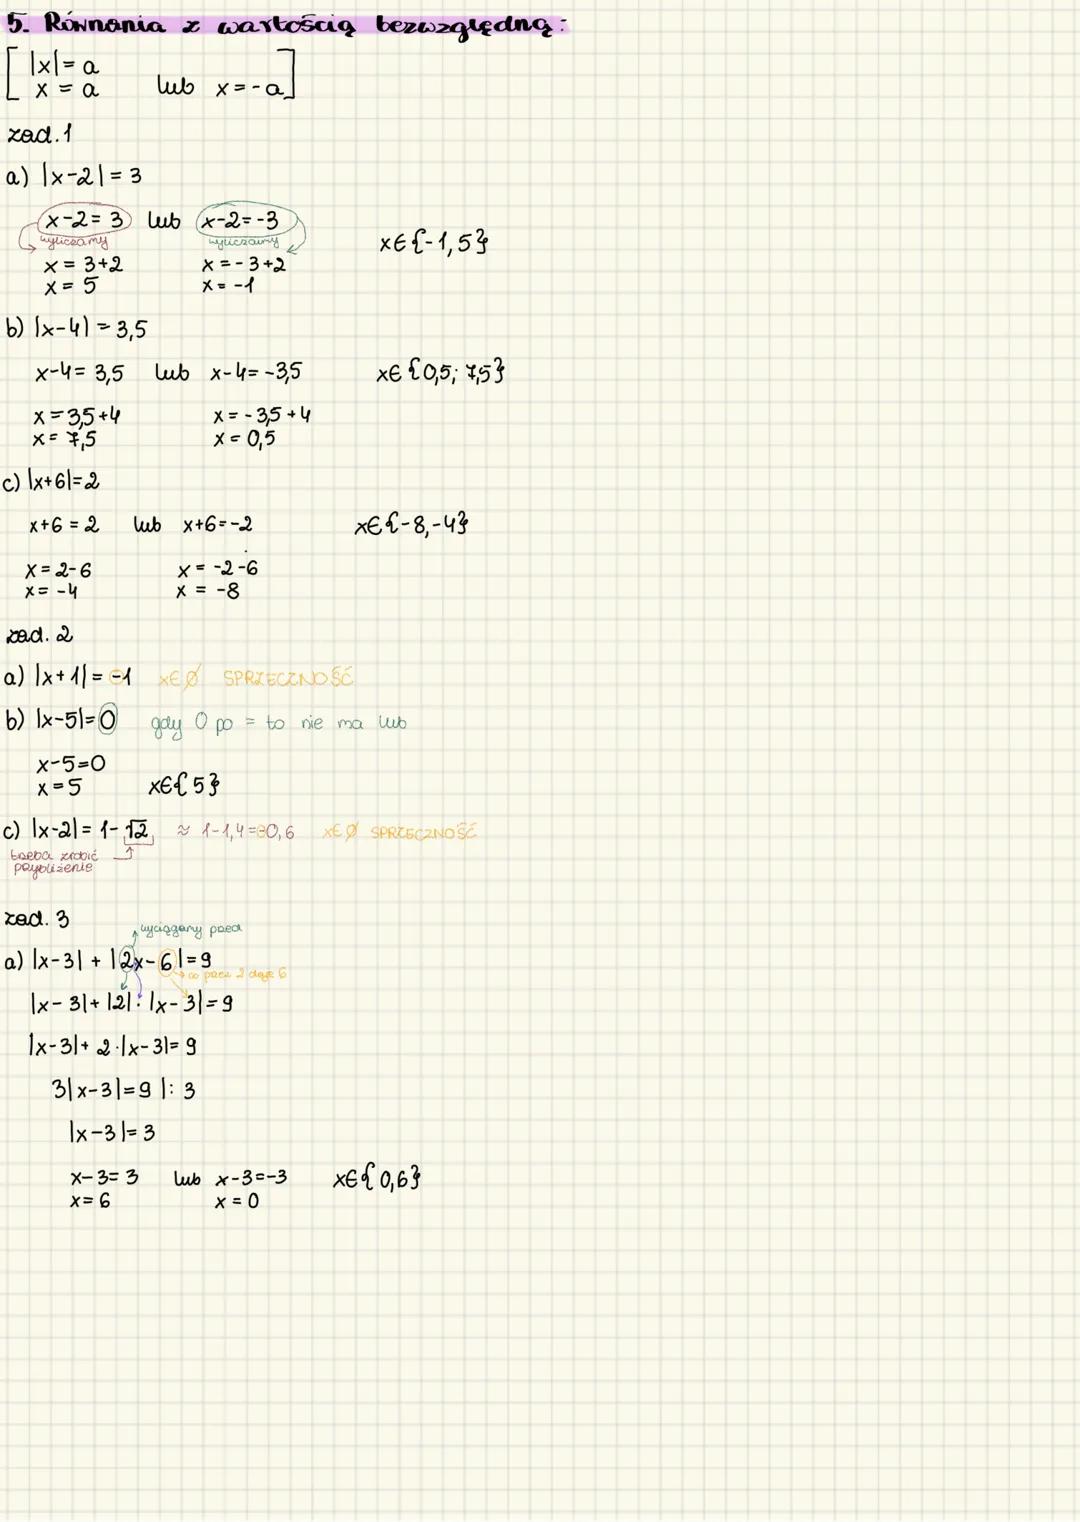 5. Równania z wartością bezwzględną:
|x|= a
x = a lub x=-a
zad.1
a) |x-2|= 3
x-2= 3 lub x-2=-3
wyliczamy wyliczamy
x∈{-1,5}
x = 3+2 x=-3+2
x= 5 x=-1
b) |x-4|=3,5
x-4= 3,5 lub x-4=-3,5 x∈{0,5; 7,5}
x=3,5+4 x=-3,5+4
x= 7,5 x= 0,5
c) |x+6|=2
x+6=2 lub x+6=-2 x∈{-8,-4}
x=2-6 x= -2-6
x= -4 x = -8
zad. 2
a) |x+1|= -1 x∈∅ SPRZECZNOŚĆ
b) |x-5|=0 gdy 0 po = to nie ma lub
x-5=0
x=5 x∈{5}
c) |x-2|= 1-√2 ≈ 1-1,4=-0,6 x∈∅ SPRZECZNOŚĆ
trzeba zrobić
przybliżenie
zad. 3
wyciągamy przed
a) |x-3| + |2x-6|=9
co przez 2 daje 6
|x-3|+|2|·|x-3|=9
|x-3|+ 2·|x-3|= 9
3|x-3|=9 |: 3
|x-3|= 3
x-3= 3 lub x-3=-3 x∈{0,6}
x= 6 x = 0